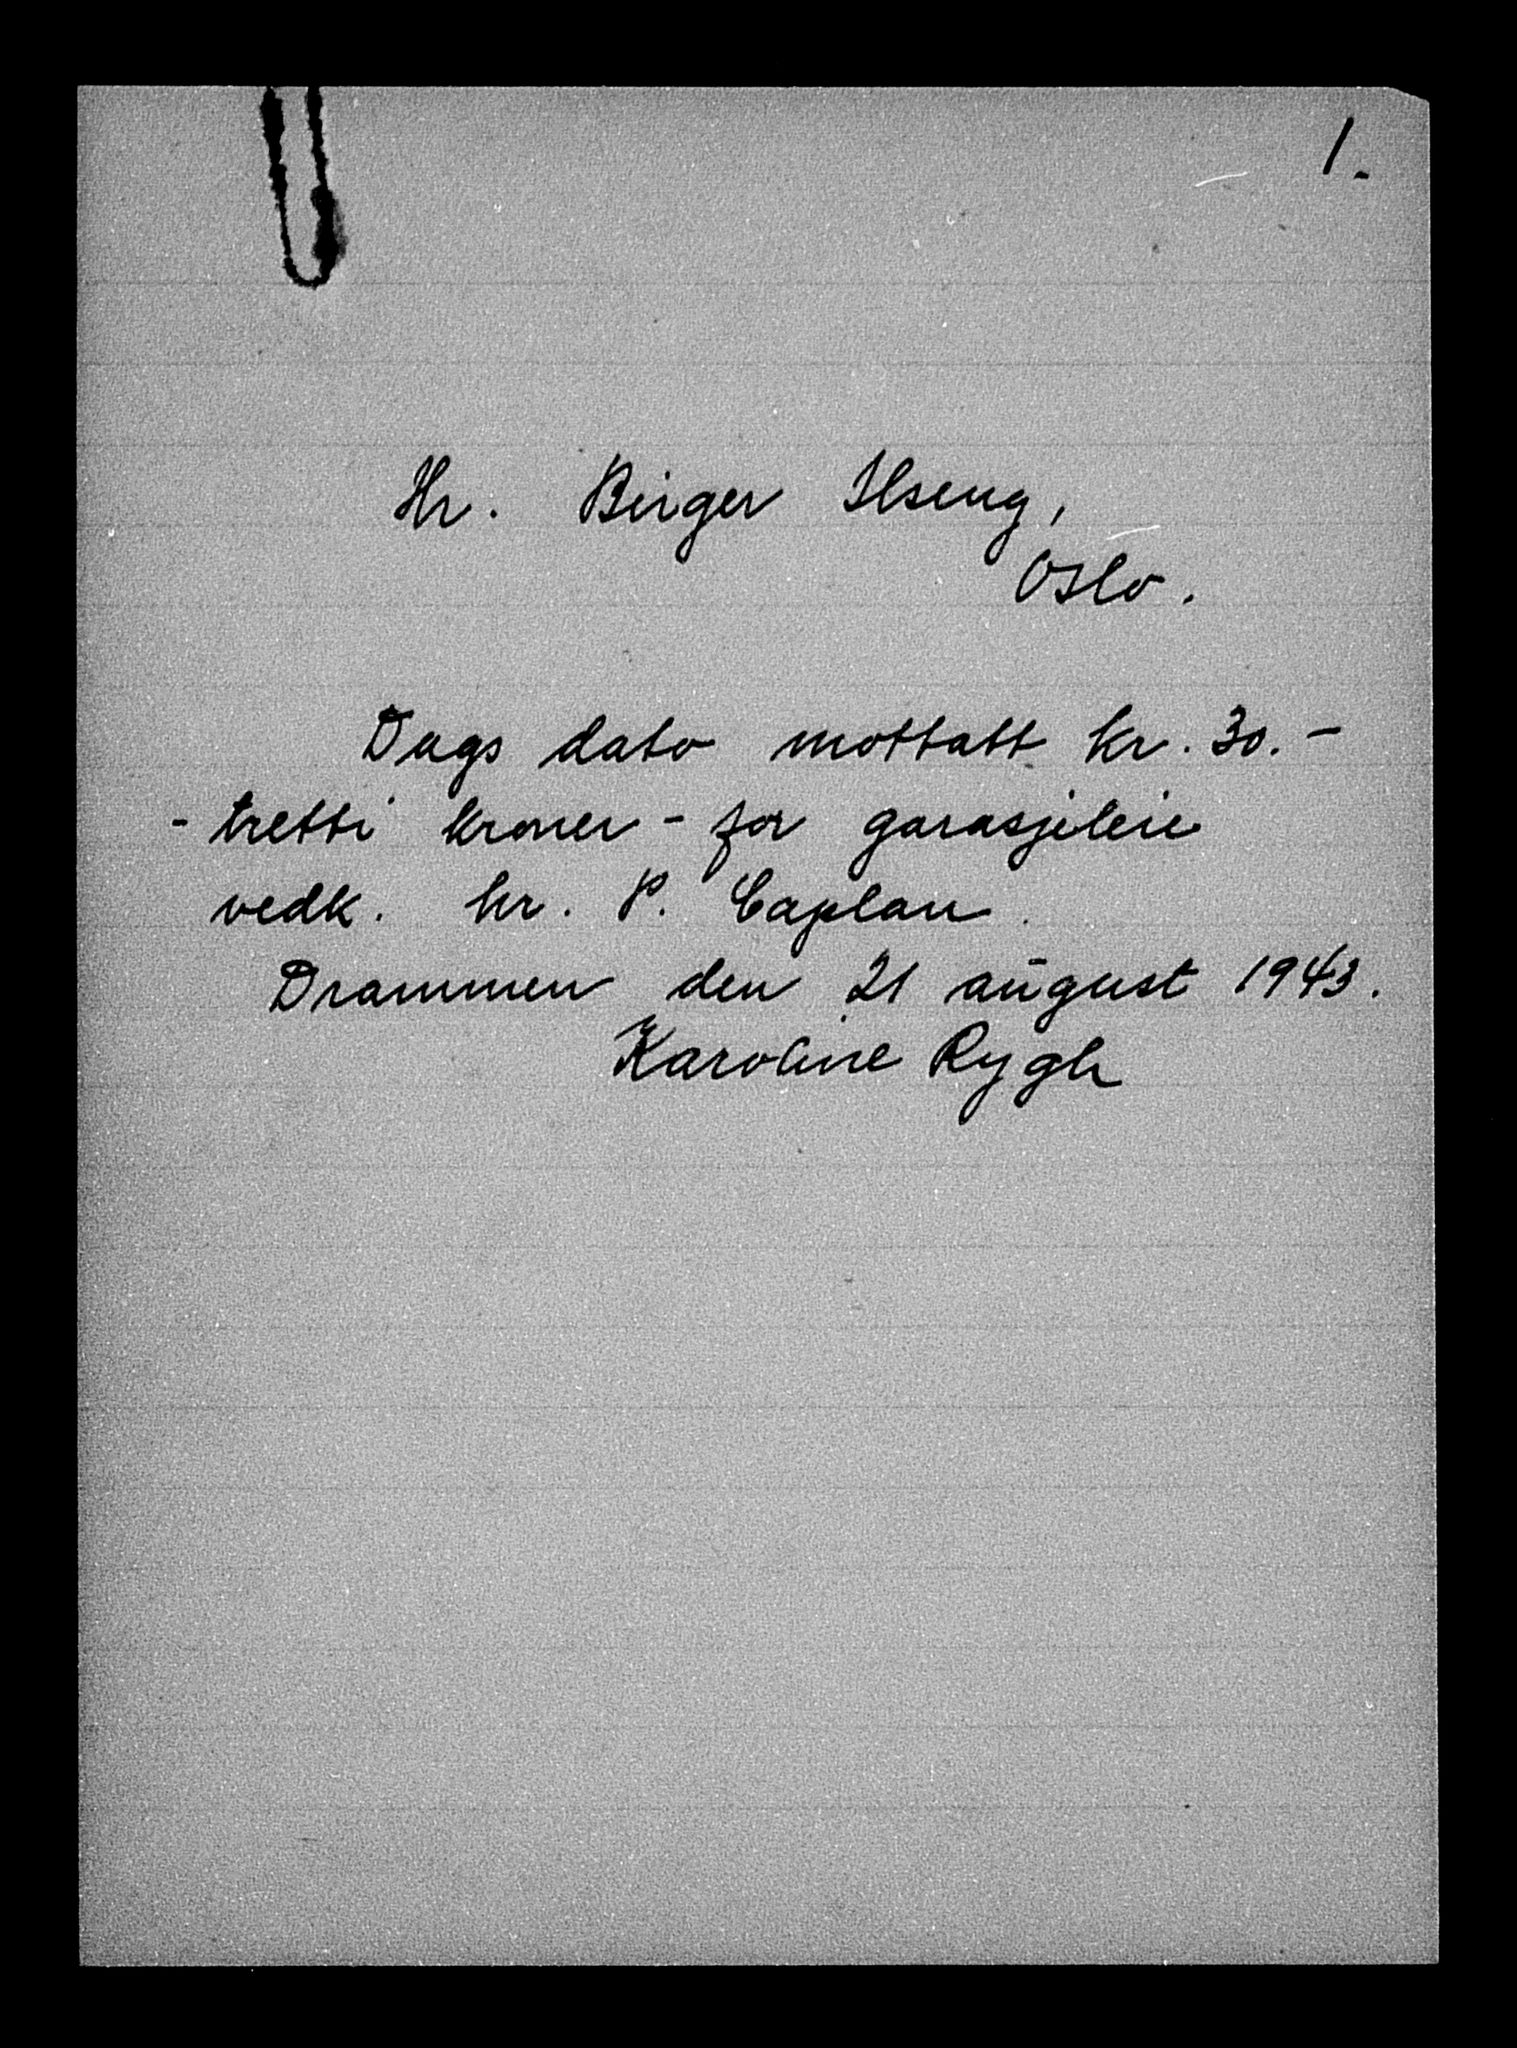 1.
Hr. Birger Ilseng,
Oslo.
Dags dato mottatt kr. 30.-
- tretti kroner - for garasjeleie
vedk. hr. P. Caplan.
Drammen den 21 august 1943.
Karoline Rygh